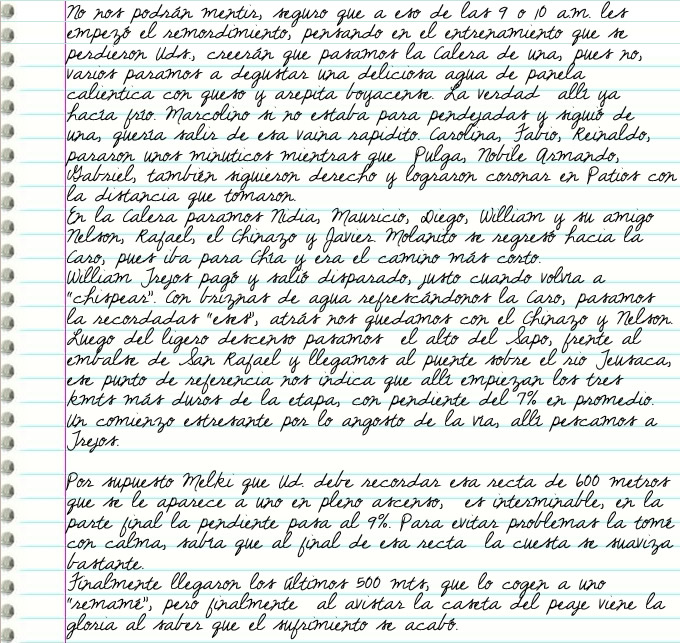 No nos podrán mentir, seguro que a eso de las 9 o 10 a.m. les
empezó el remordimiento, pensando en el entrenamiento que se
perdieron Uds., creerán que pasamos la Calera de una, pues no,
varios paramos a degustar una deliciosa agua de panela
calientica con queso y arepita boyacense. La verdad allí ya
hacía frío. Marcolino si no estaba para pendejadas y siguió de
una, quería salir de esa vaina rapidito. Carolina, Fabio, Reinaldo,
pararon unos minuticos mientras que Pulga, Nobile Armando,
Gabriel, también siguieron derecho y lograron coronar en Patios con
la distancia que tomaron.
En la Calera paramos Nidia, Mauricio, Diego, William y su amigo
Nelson, Rafael, el Chinazo y Javier. Molanito se regresó hacia la
Caro, pues iba para Chía y era el camino más corto.
William Trejos pagó y salió disparado, justo cuando volvía a
"chispear". Con briznas de agua refrescándonos la Caro, pasamos
la recordadas "eses", atrás nos quedamos con el Chinazo y Nelson.
Luego del ligero descenso pasamos el alto del Sapo, frente al
embalse de San Rafael y llegamos al puente sobre el río Teusaca,
ese punto de referencia nos indica que allí empiezan los tres
kmts más duros de la etapa, con pendiente del 7% en promedio.
Un comienzo estresante por lo angosto de la vía, allí pescamos a
Trejos.

Por supuesto Melki que Ud. debe recordar esa recta de 600 metros
que se le aparece a uno en pleno ascenso, es interminable, en la
parte final la pendiente pasa al 9%. Para evitar problemas la tomé
con calma, sabía que al final de esa recta la cuesta se suaviza
bastante.
Finalmente llegaron los últimos 500 mts, que lo cogen a uno
"remamé", pero finalmente al avistar la caseta del peaje viene la
gloria al saber que el sufrimiento se acabó.